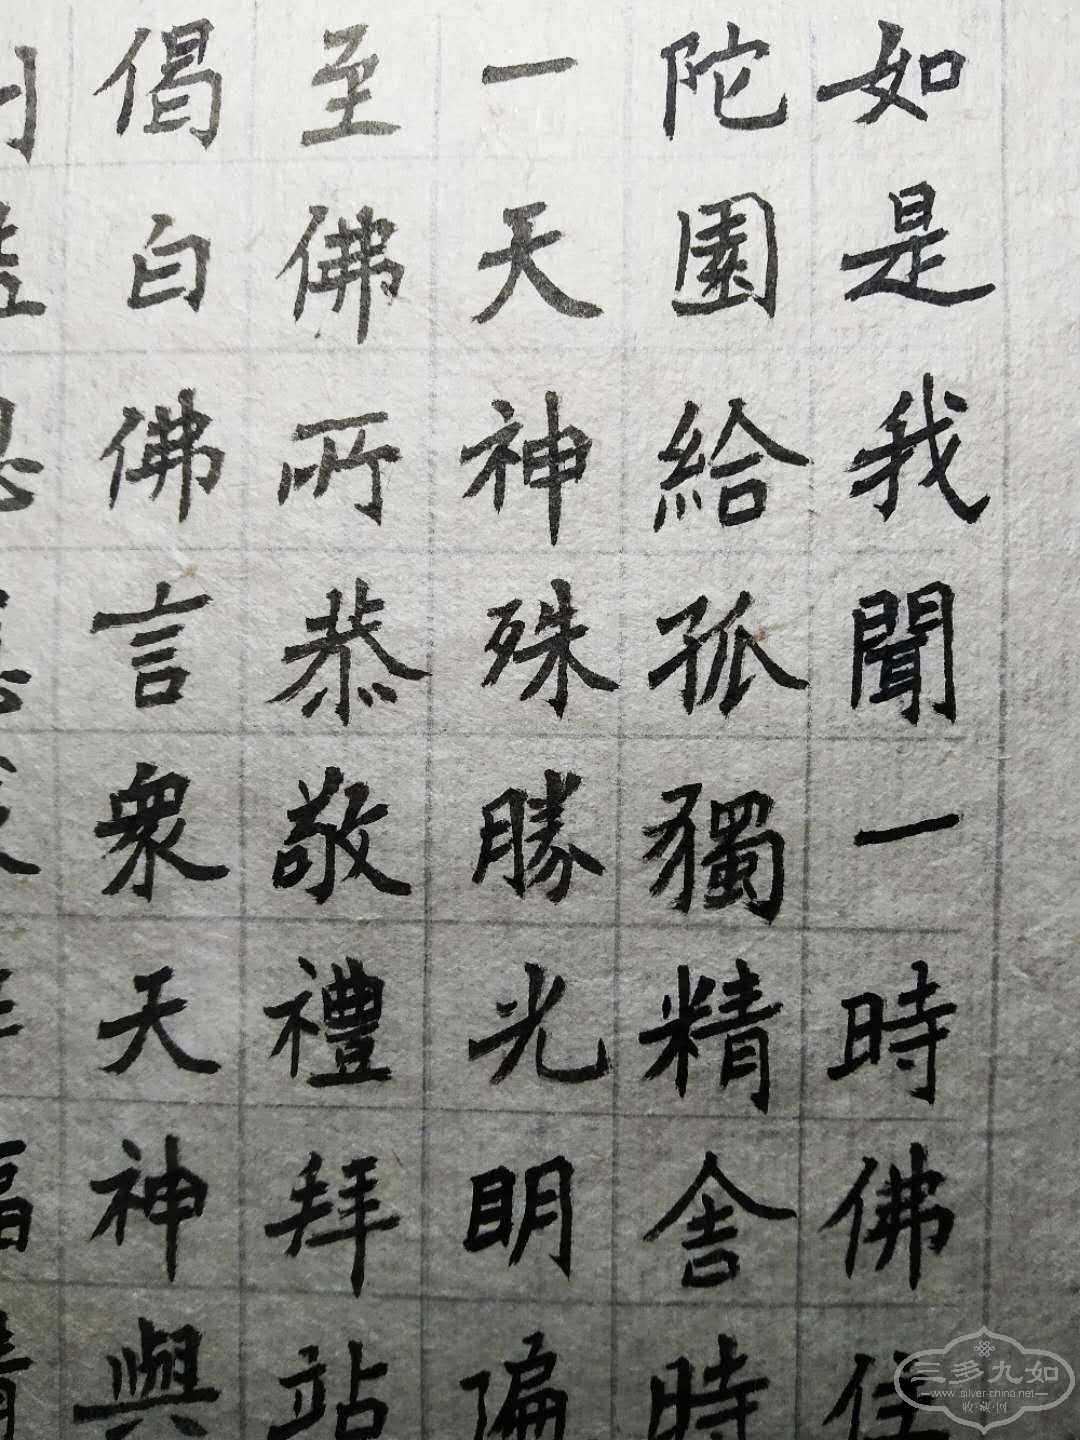 如是我聞一時佛住
陀園給孤獨精舍時
一天神殊勝光明偏
至佛所恭敬禮拜站
偈白佛言衆天神與
三多九如
www.silver-china.net
收藏网